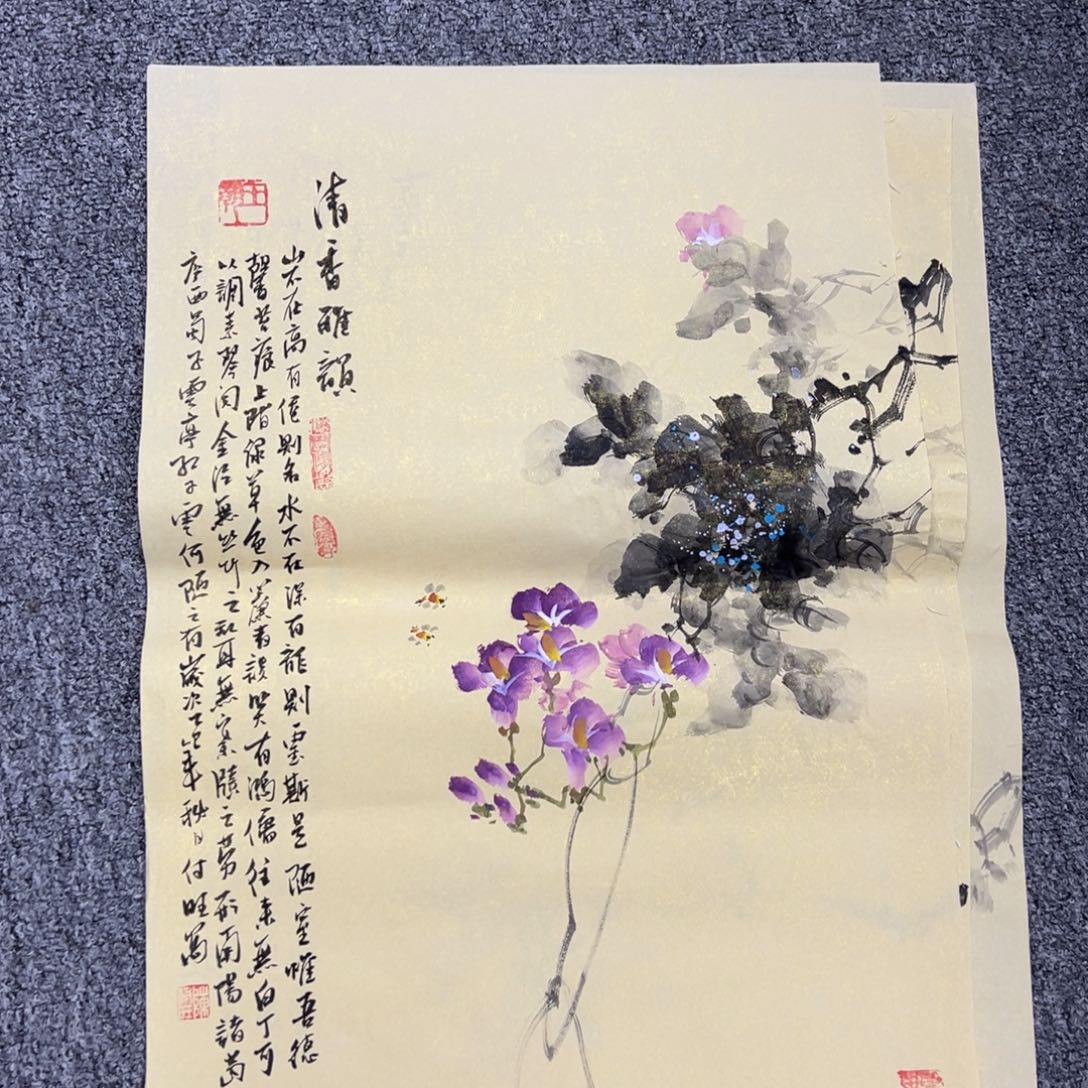 清香雅韻
山不在高有僊則名水不在深有龍則靈斯是陋室惟吾德
馨苔痕上階綠草色入簾青談笑有鴻儒往來無白丁可
以調素琴閱金經無丝竹之乱耳無案牘之勞形南陽諸葛
庐西蜀子雲亭孔子雲何陋之有歲次己年秋月付旺寫